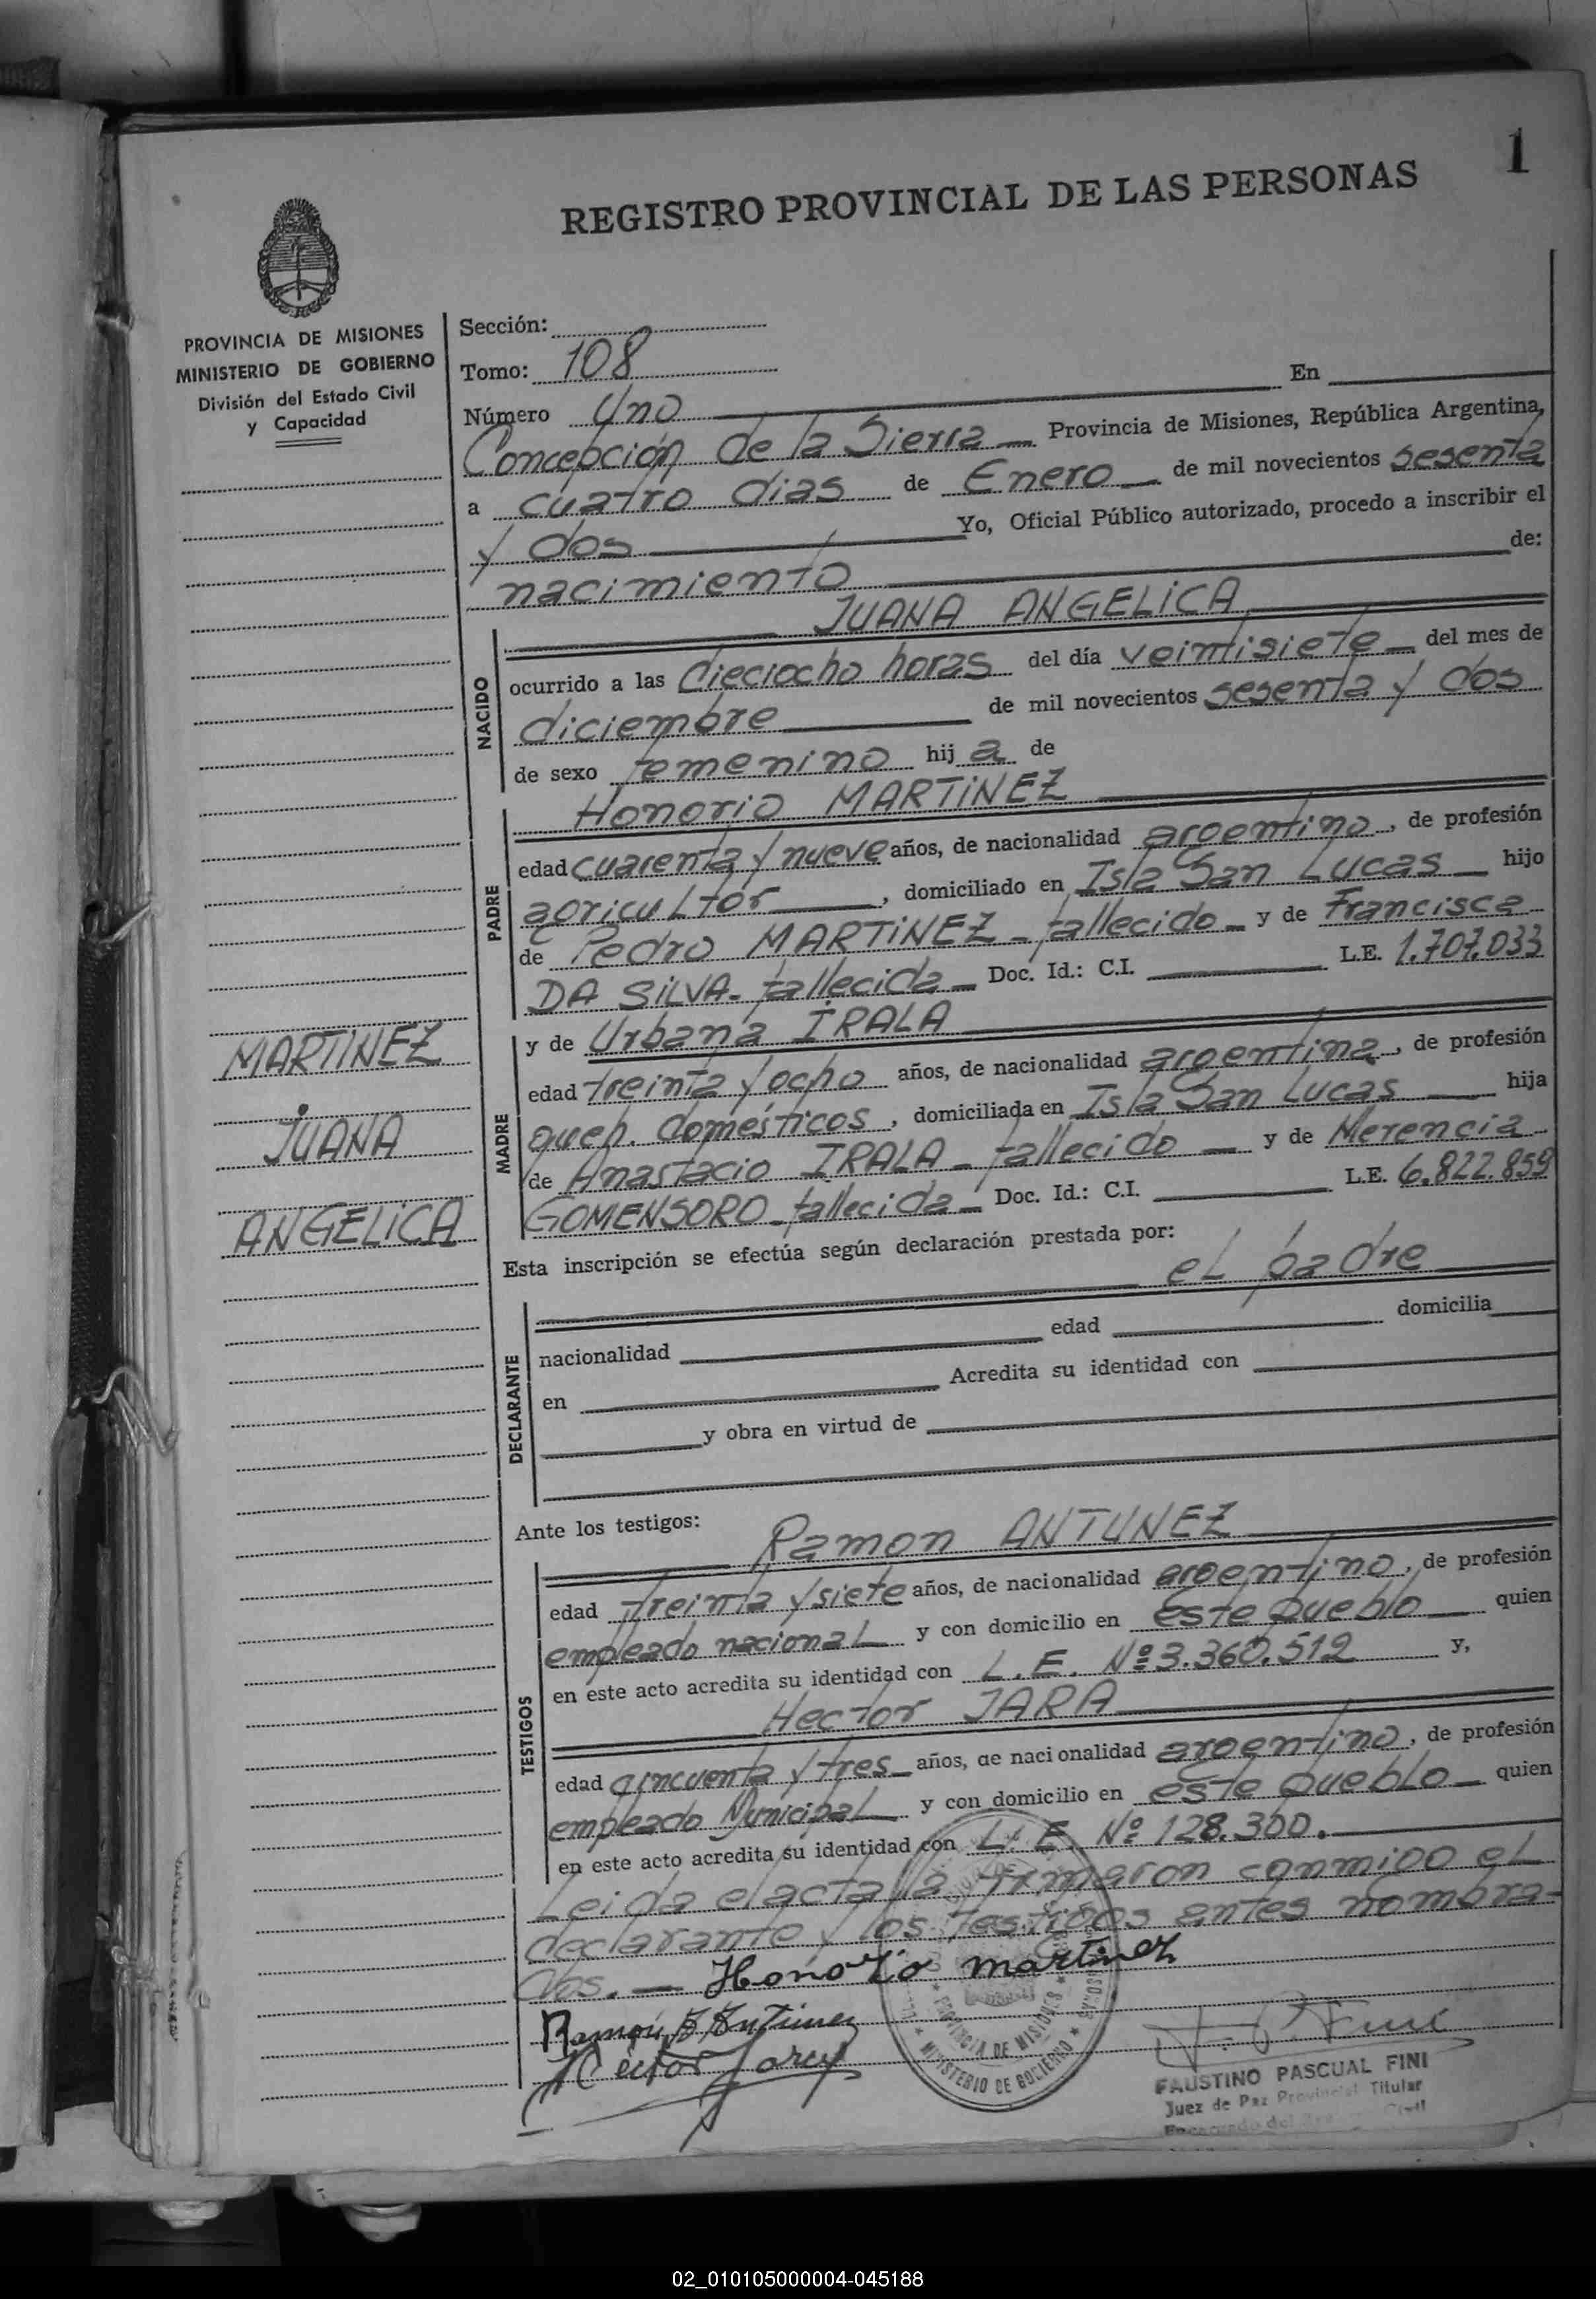 1
REGISTRO PROVINCIAL DE LAS PERSONAS
PROVINCIA DE MISIONES
MINISTERIO DE GOBIERNO
División del Estado Civil
y Capacidad
Sección:
Tomo: 108
Número Uno En
Concepción de la Sierra Provincia de Misiones, República Argentina,
a cuatro dias de Enero de mil novecientos sesenta
y dos Yo, Oficial Público autorizado, procedo a inscribir el
nacimiento de:
NACIDO
JUANA ANGELICA
ocurrido a las dieciocho horas del día veintisiete del mes de
diciembre de mil novecientos sesenta y dos
de sexo femenino hij a de
PADRE
Honorio MARTINEZ
edad cuarenta y nueve años, de nacionalidad argentino, de profesión
agricultor, domiciliado en Isla San Lucas hijo
de Pedro MARTINEZ - fallecido - y de Francisca
DA SILVA - fallecida - Doc. Id.: C.I. L.E. 1.707.033
MADRE
y de Urbana IRALA
edad treinta y ocho años, de nacionalidad argentina, de profesión
queh. domésticos, domiciliada en Isla San Lucas hija
de Anastacio IRALA - fallecido - y de Merencia
GOMENSORO - fallecida - Doc. Id.: C.I. L.E. 6.822.859
MARTINEZ
JUANA
ANGELICA
Esta inscripción se efectúa según declaración prestada por:
el padre
DECLARANTE
nacionalidad edad domicilia
en Acredita su identidad con
y obra en virtud de
Ante los testigos:
TESTIGOS
Ramon ANTUNEZ
edad treinta y siete años, de nacionalidad argentino, de profesión
empleado nacional y con domicilio en este pueblo quien
en este acto acredita su identidad con L.E. Nº 3.360.512 y,
Hector JARA
edad cincuenta y tres años, de nacionalidad argentino, de profesión
empleado Municipal y con domicilio en este pueblo quien
en este acto acredita su identidad con L.E. Nº 128.300.
Leida el acta la firmaron conmigo el
declarante y los testigos antes nombra-
dos. - Honorio martinez
Ramón Antunez
Héctor Jara
PROVINCIA DE MISIONES
MINISTERIO DE GOBIERNO
F. P. Fini
FAUSTINO PASCUAL FINI
Juez de Paz Provincial Titular
Encargado del Civil
02_010105000004-045188